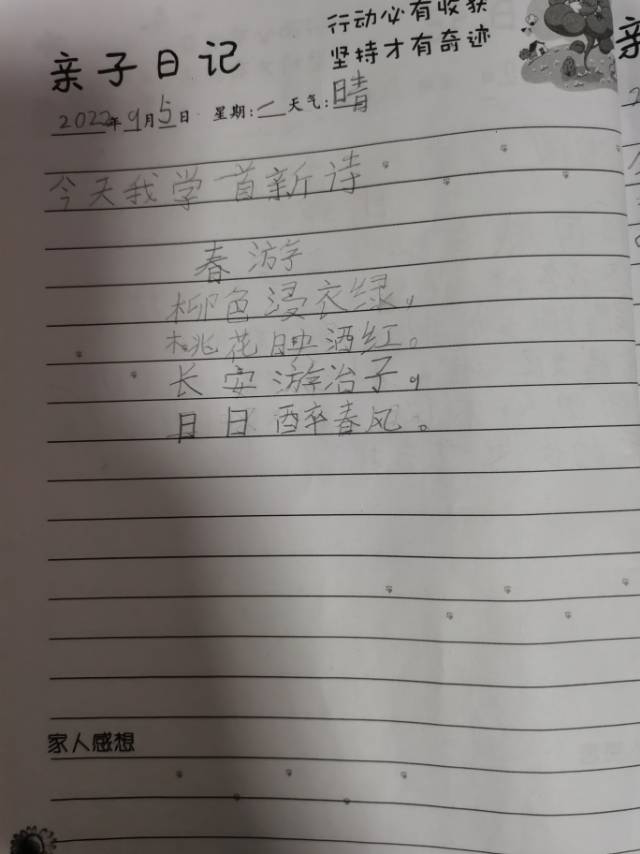 行动必有收获
坚持才有奇迹
亲子日记
2022年9月5日 星期:一 天气:晴
今天我学首新诗
春游
柳色浸衣绿,
桃花映酒红。
长安游冶子,
日日醉春风。
家人感想